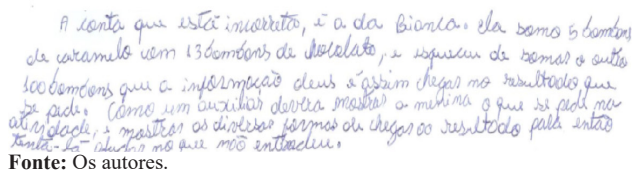 A conta que está incorreta, é a da Bianca. Ela somo 5 bombons
de caramelo com 13 bombons de chocolate, e esqueceu de somar o outro
100 bombons que a informação deus e assim chegar no resultado que
se pede. Como um auxiliar devera mostrar a menina o que se pede na
atividade, e mostrar as diversas formas de chegar ao resultado para então
tenta-lá ajudar no que não entendeu.
Fonte: Os autores.